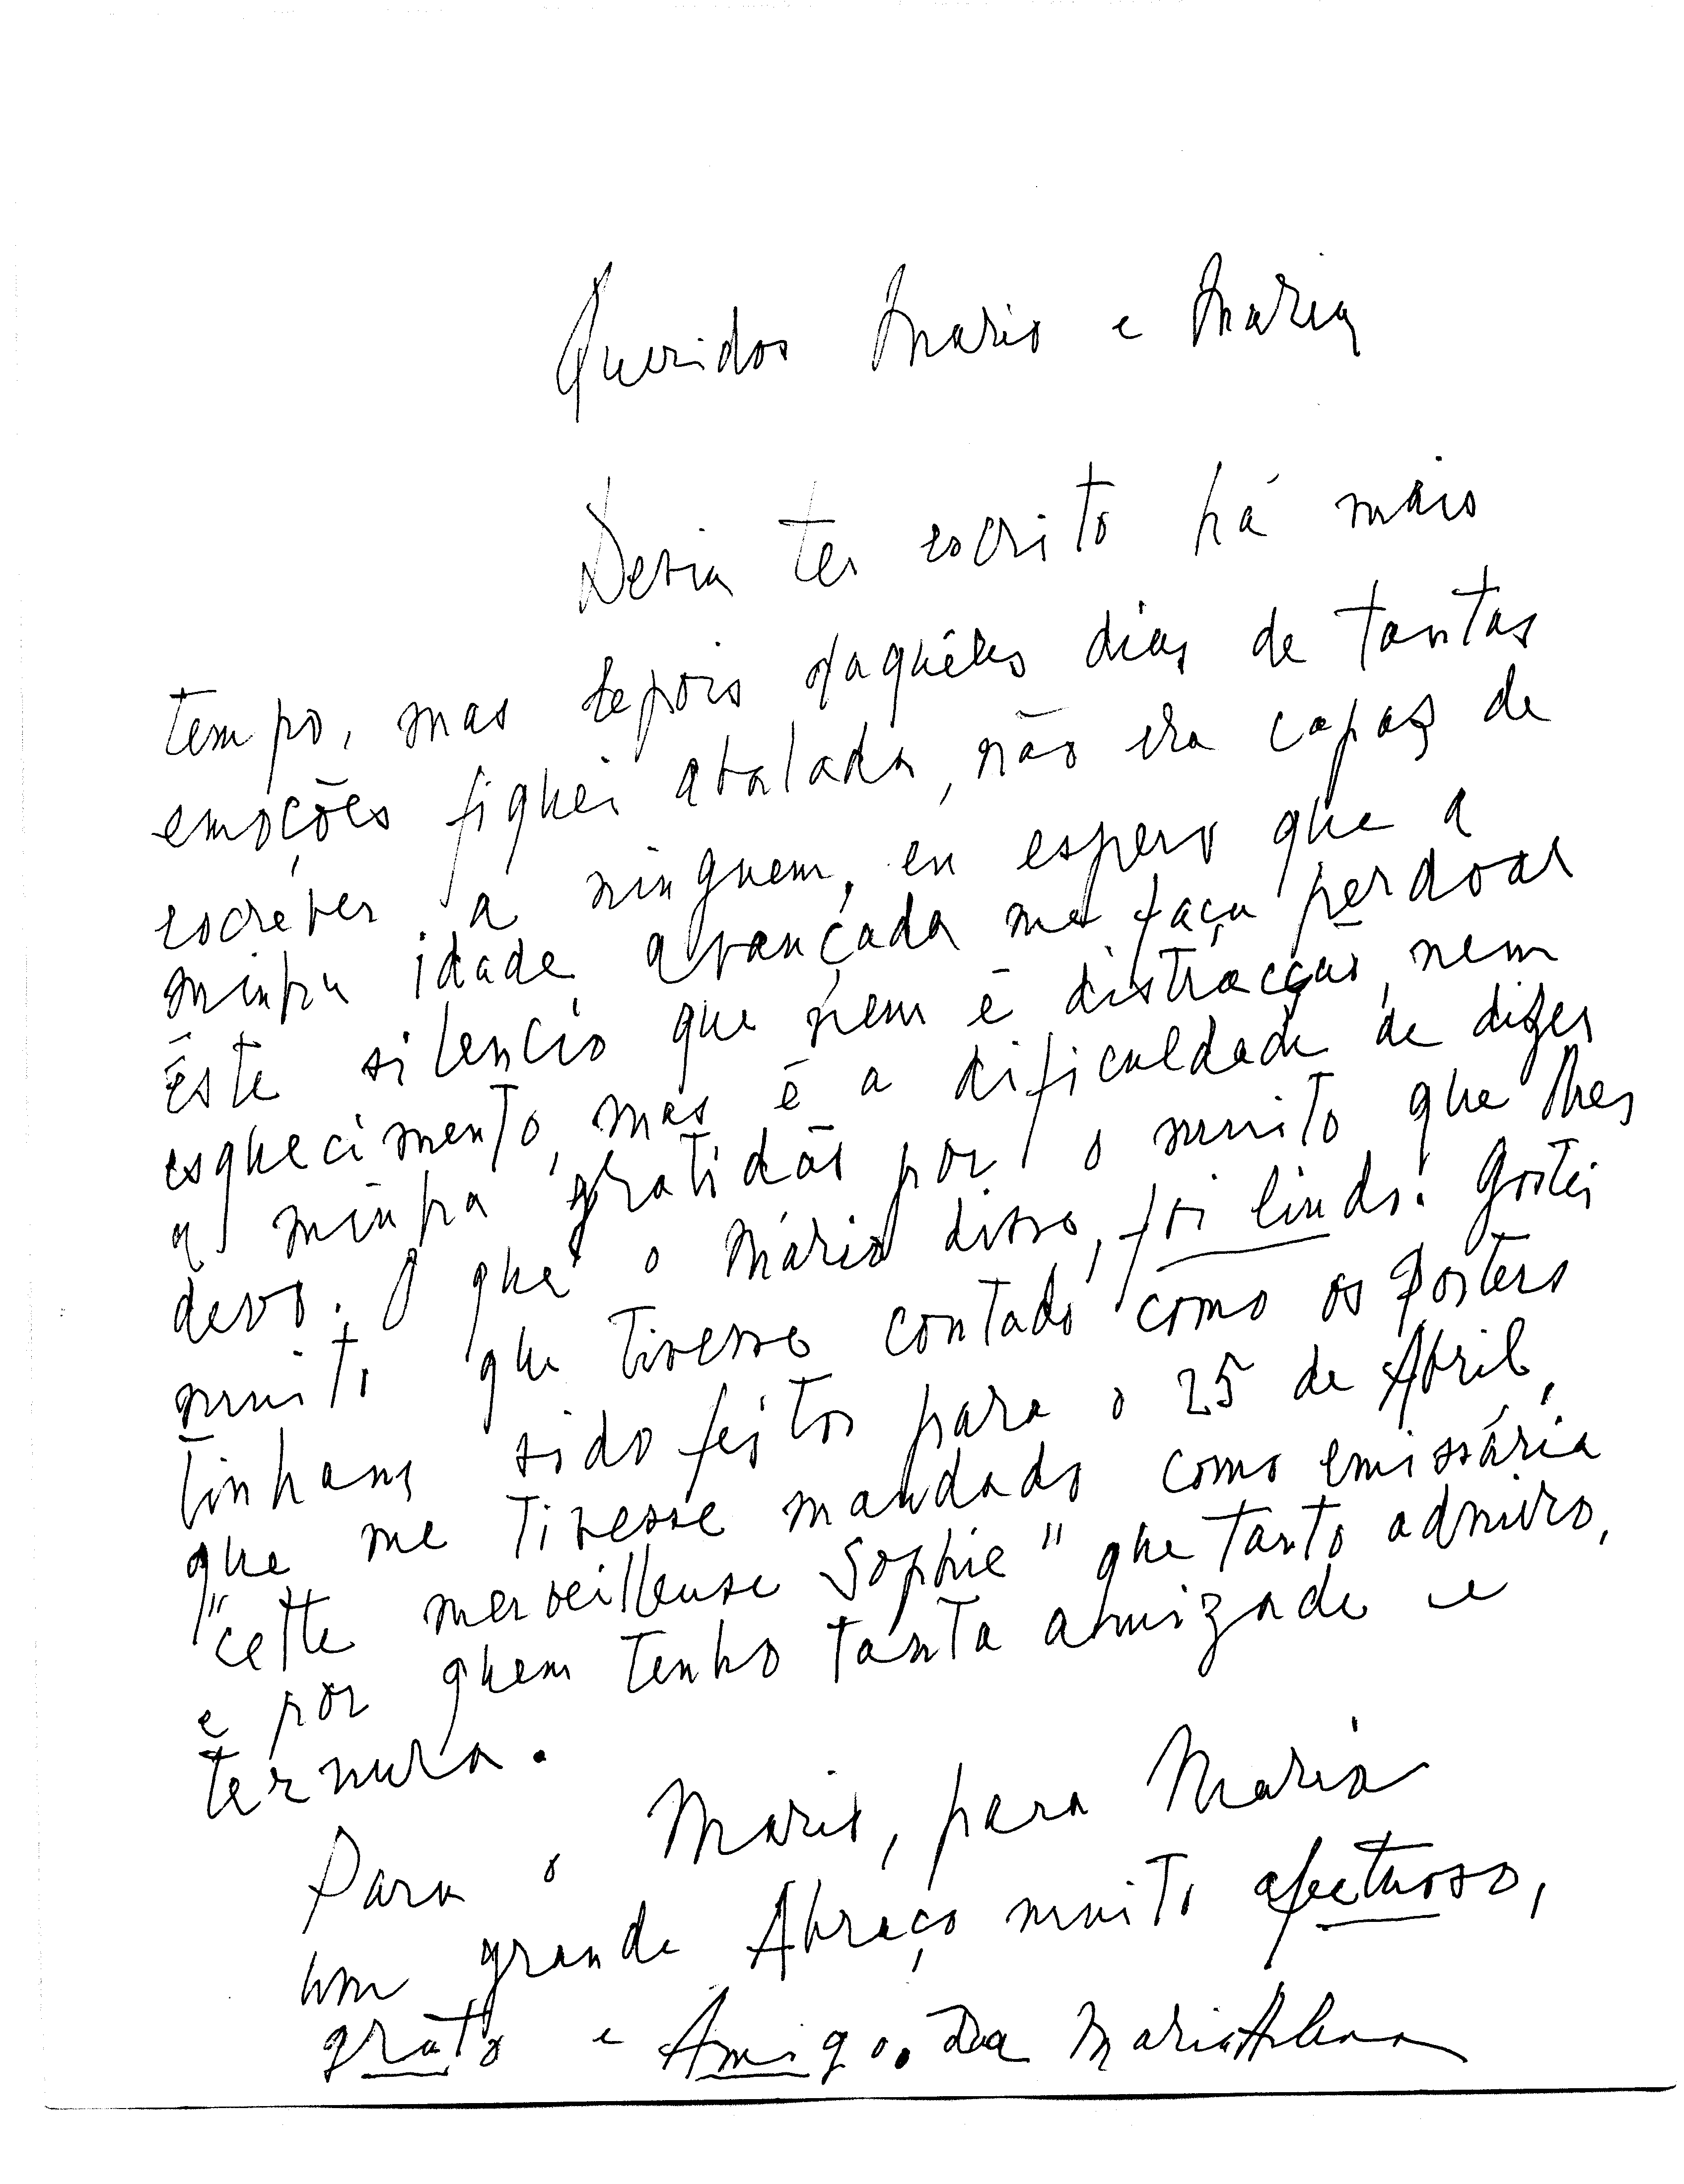 Queridos Mario e Maria
Devia ter escrito há mais
tempo, mas depois daquêles dias de tantas
emoções fiquei abalada, não era capaz de
escrever a ninguem, eu espero que a
minha idade avançada me faça perdoar
êste silencio que nem é distracção, nem
esquecimento, mas é a dificuldade de dizer
a minha gratidão por o muito que lhes
devo. O que o Mário disse, foi lindo. Gostei
muito que tivesse contado como os posters
tinham sido feitos para o 25 de Abril,
que me tivesse mandado como emissária
"cette merveilleuse Sophie" que tanto admiro,
e por quem tenho tanta amizade e
ternura.
Para o Mario, para Maria
um grande Abraço muito afectuoso,
grato e Amigo. Da Maria Helena